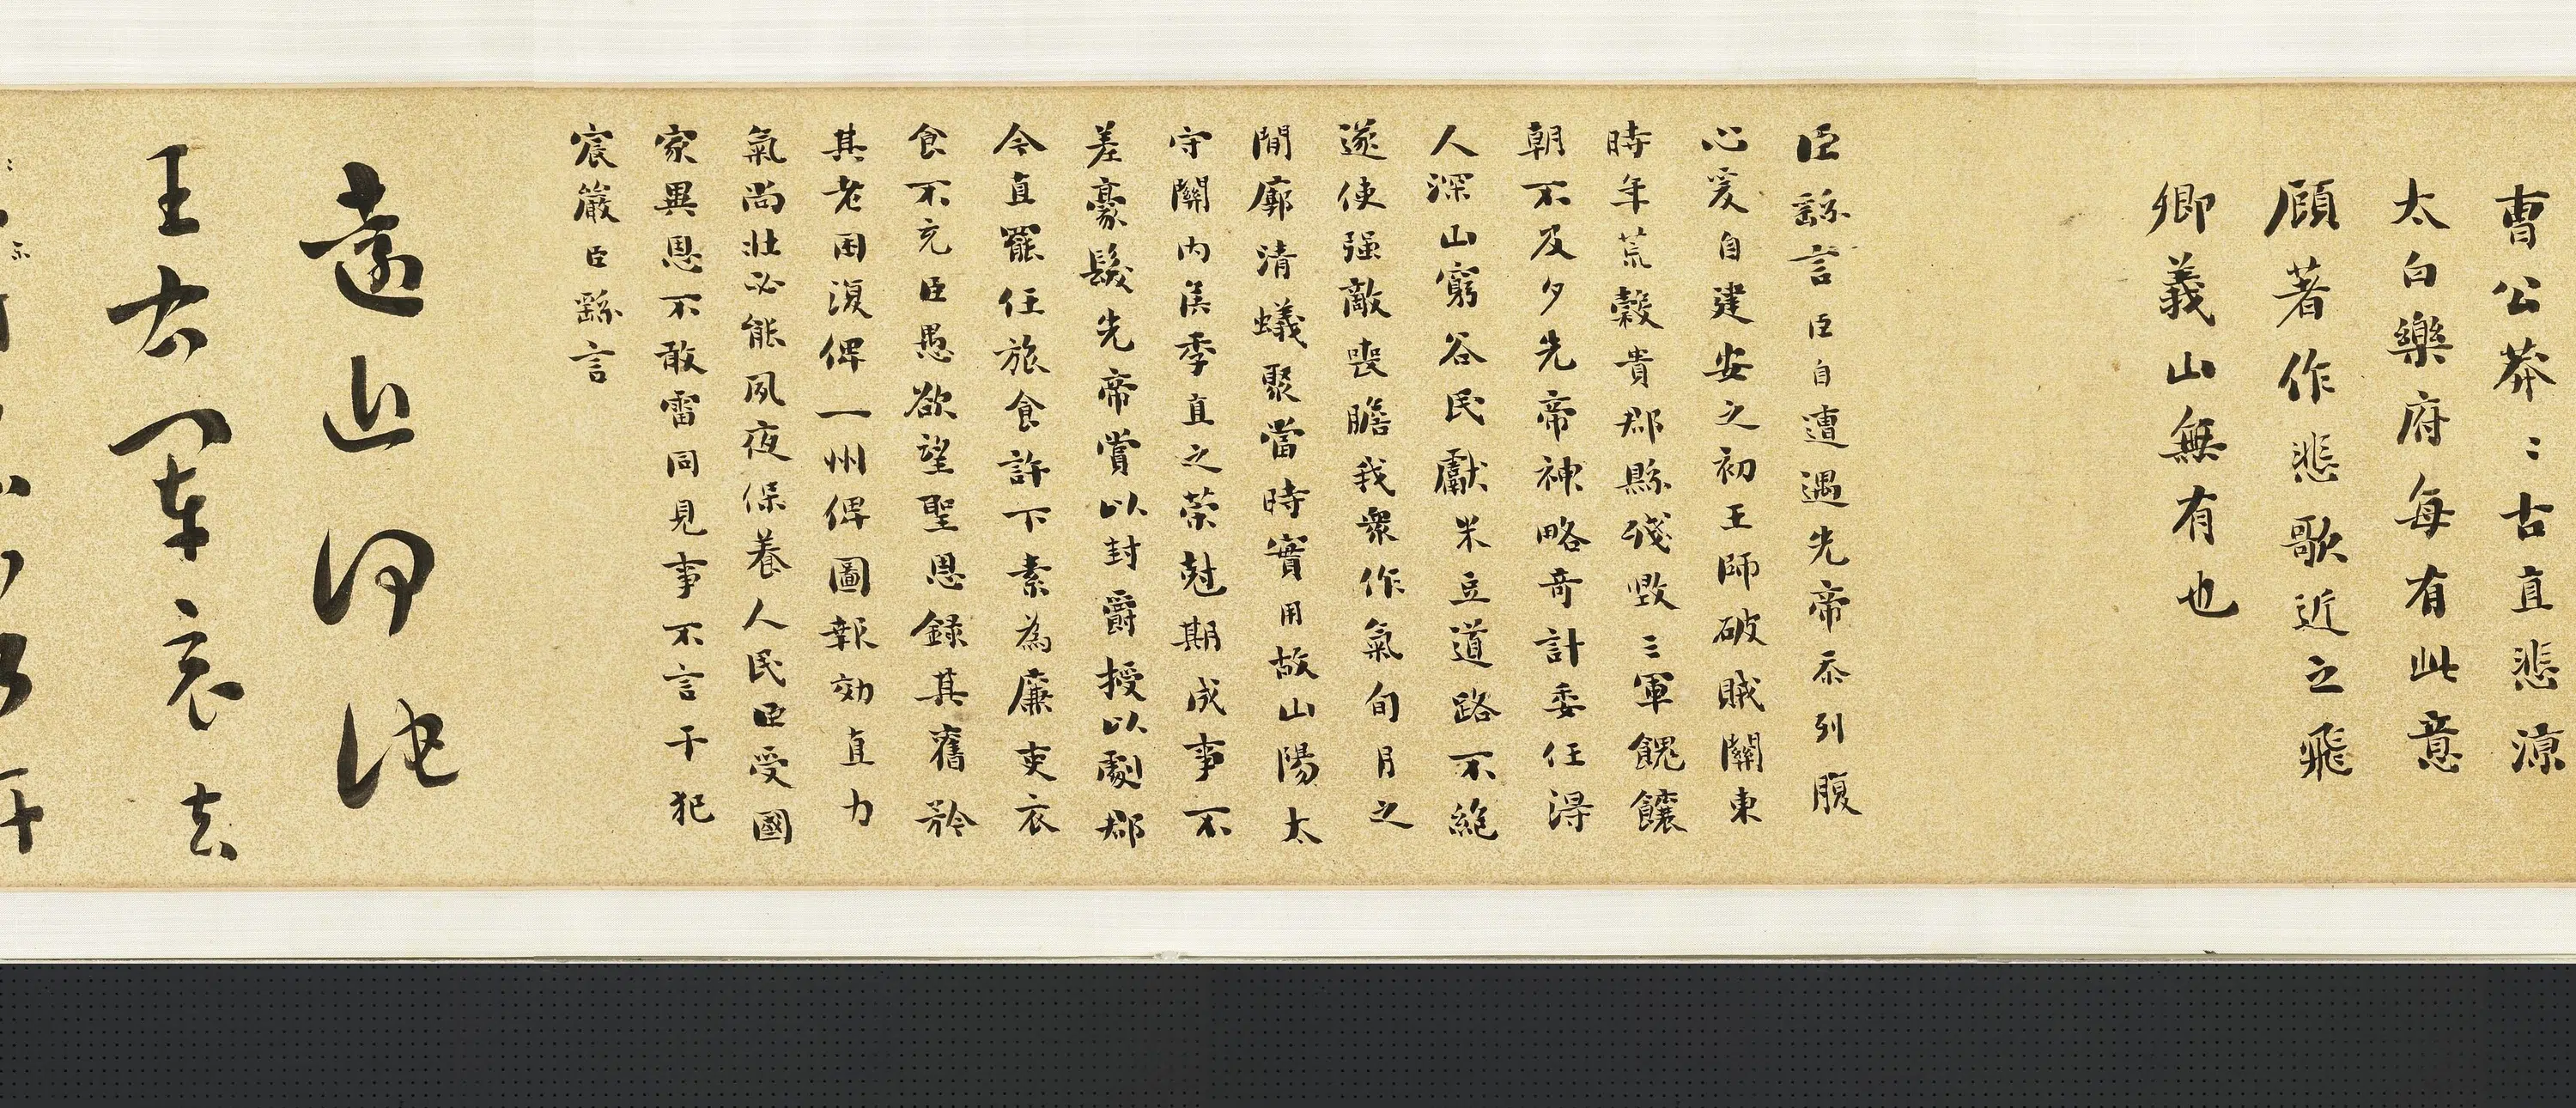 曹公莽〻古直悲涼
太白樂府每有此意
顧著作悲歌近之飛
卿義山無有也
臣繇言臣自遭遇先帝忝列腹
心爰自建安之初王師破賊關東
時年荒穀貴郡縣殘毀三軍餽饟
朝不及夕先帝神略奇計委任得
人深山窮谷民獻米豆道路不絕
遂使强敵喪膽我衆作氣旬月之
間廓清蟻聚當時實用故山陽太
守關內侯季直之策尅期成事不
差豪髮先帝賞以封爵授以劇郡
今直罷任旅食許下素為廉吏衣
食不充臣愚欲望聖恩錄其舊矜
其老困復俾一州俾圖報効直力
氣尚壯必能夙夜保養人民臣受國
家異恩不敢雷同見事不言干犯
宸嚴臣繇言
遠近清和
王右軍哀去